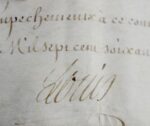 mpechemens a ce con
Mil sept cent soixan
Louis